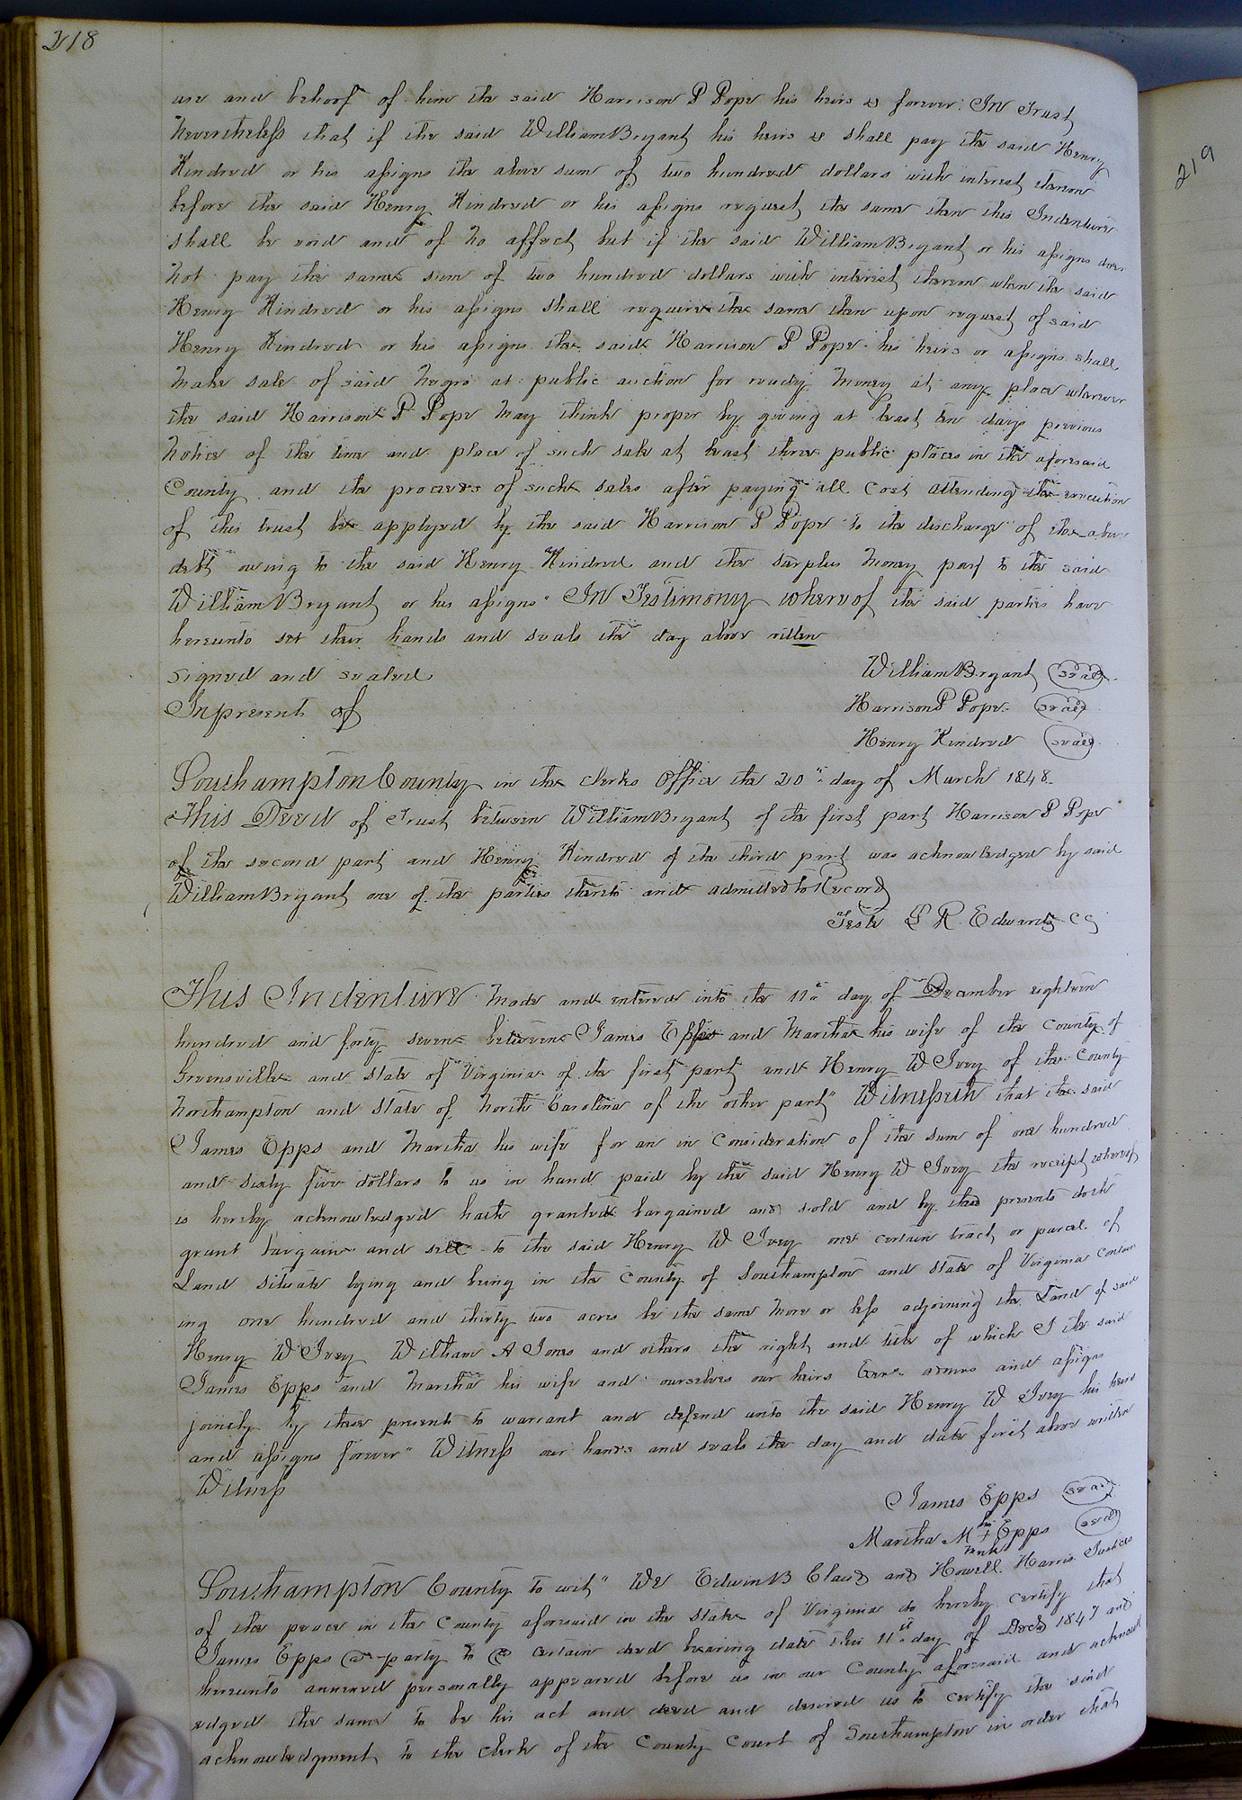 218
use and behoof of him the said Harrison P Pope his heirs & forever: In Trust
Nevertheless that if the said William Bryant his heirs & shall pay the said Henry
Kindred or his assigns the above sum of two hundred dollars with interest thereon
before the said Henry Kindred or his assigns request the same then this Indenture
shall be void and of no affect but if the said William Bryant or his assigns does
not pay the same sum of two hundred dollars with interest thereon when the said
Henry Kindred or his assigns shall require the same then upon request of said
Henry Kindred or his assigns the said Harrison P Pope his heirs or assigns shall
make sale of said negro at public auction for ready money at any place wherever
the said Harrison P Pope may think proper by giving at least ten days previous
notice of the time and place of such sale at least three public places in the aforesaid
County and the proceeds of such sales after paying all cost attending the execution
of this trust be applyed by the said Harrison P Pope to the discharge of the above
debt owing to the said Henry Kindred and the surplus money pay to the said
William Bryant or his assigns. In Testimony whereof the said parties have
hereunto set their hands and seals the day above ritten
signed and sealed William Bryant (seal)
In present of Harrison P Pope (seal)
Henry Kindred (seal)
Southampton County in the clerks Office the 20th day of March 1848
This Deed of Trust between William Bryant of the first part Harrison P Pope
of the second part and Henry Kindred of the third part was acknowledged by said
William Bryant one of the parties thereto and admitted to Record
Teste L R Edwards CC
This Indenture made and entered into the 11th day of December eighteen
hundred and forty seven between James Epps and Martha his wife of the County of
Greensville and State of Virginia of the first part and Henry W Ivey of the County
Northampton and State of North Carolina of the other part" Witnesseth that the said
James Epps and Martha his wife for an in Consideration of the sum of one hundred
and sixty five dollars to us in hand paid by the said Henry W Ivey the receipt whereof
is hereby acknowledged hath granted bargained and sold and by these presents doth
grant bargain and sell to the said Henry W Ivey one certain tract or parcel of
Land situate lying and being in the County of Southampton and State of Virginia contain
ing one hundred and thirty two acres be the same more or less adjoining the Land of said
Henry W Ivey William A Jones and others the right and title of which I the said
James Epps and Martha his wife and ourselves our heirs Exrs admrs and assigns
joinely by these presents to warrant and defend unto the said Henry W Ivey his heirs
and assigns forever" Witness our hands and seals the day and date first above written
Witness James Epps (seal)
Martha M + Epps (seal)
mark
Southampton County to wit" We Edwin B Claud and Howell Harris Justices
of the peace in the County aforesaid in the State of Virginia do hereby certify that
James Epps a party to a certain deed bearing date this 11th day of Decr 1847 and
hereunto annexed personally appeared before us in our County aforesaid and acknowl
edged the same to be his act and deed and desired us to certify the said
acknowledgment to the clerk of the County Court of Southampton in order that
219